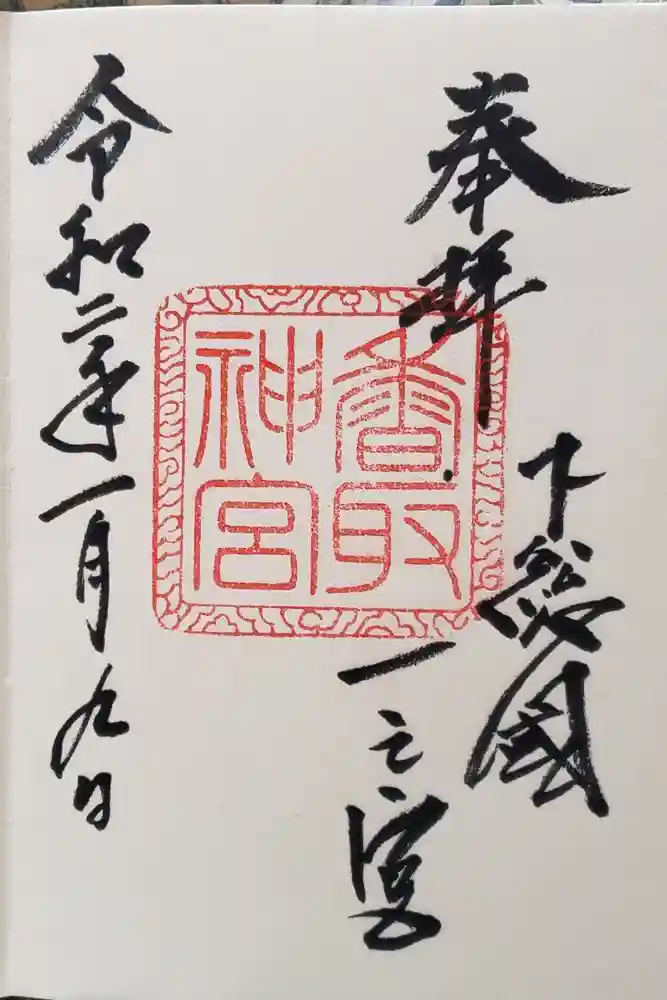 奉拝
下総國
一之宮
香取
神宮
令和二年一月九日